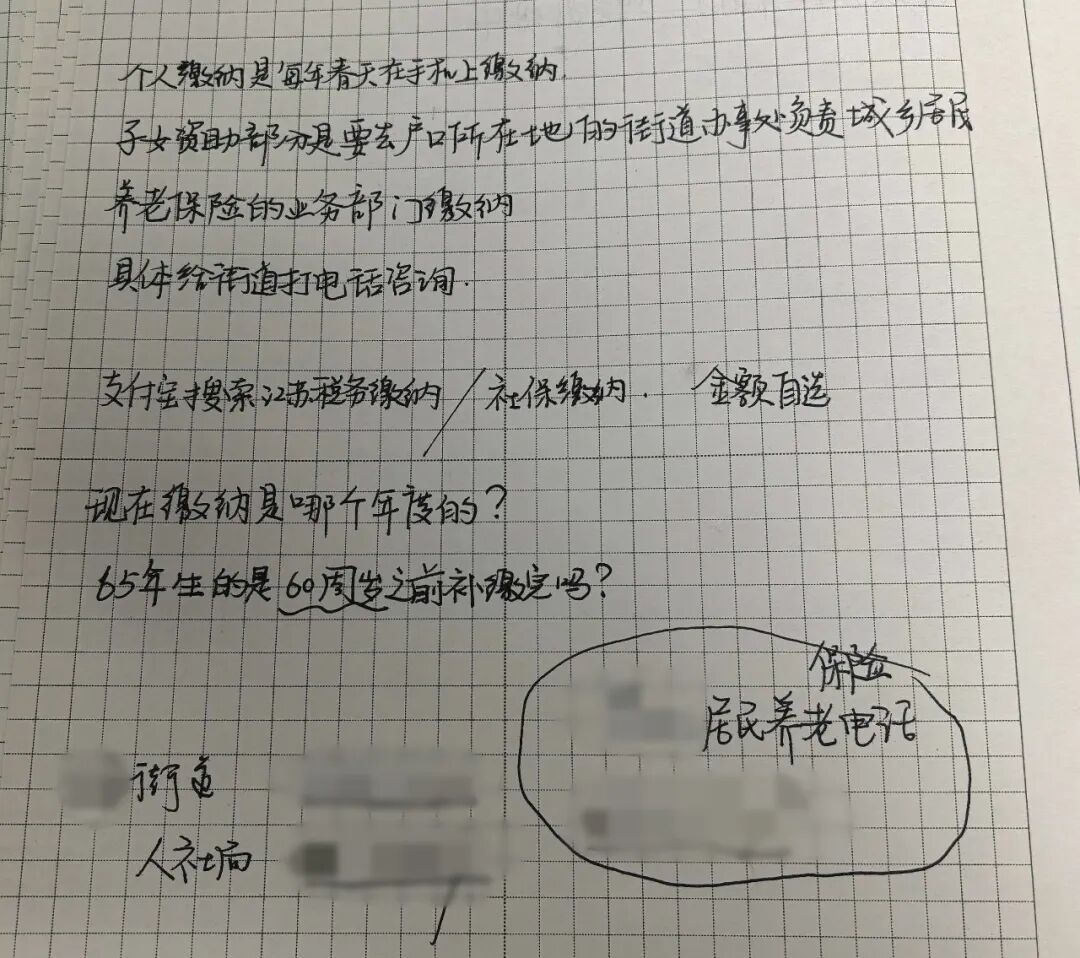 个人缴纳是每年春天在手机上缴纳.
子女资助部分是要去户口所在地的街道办事处负责城乡居民
养老保险的业务部门缴纳
具体给街道打电话咨询.
支付宝搜索江苏税务缴纳/社保缴纳. 金额自选
现在缴纳是哪个年度的?
65年生的是60周岁之前补缴完吗?
保险
居民养老电话
街道
人社局